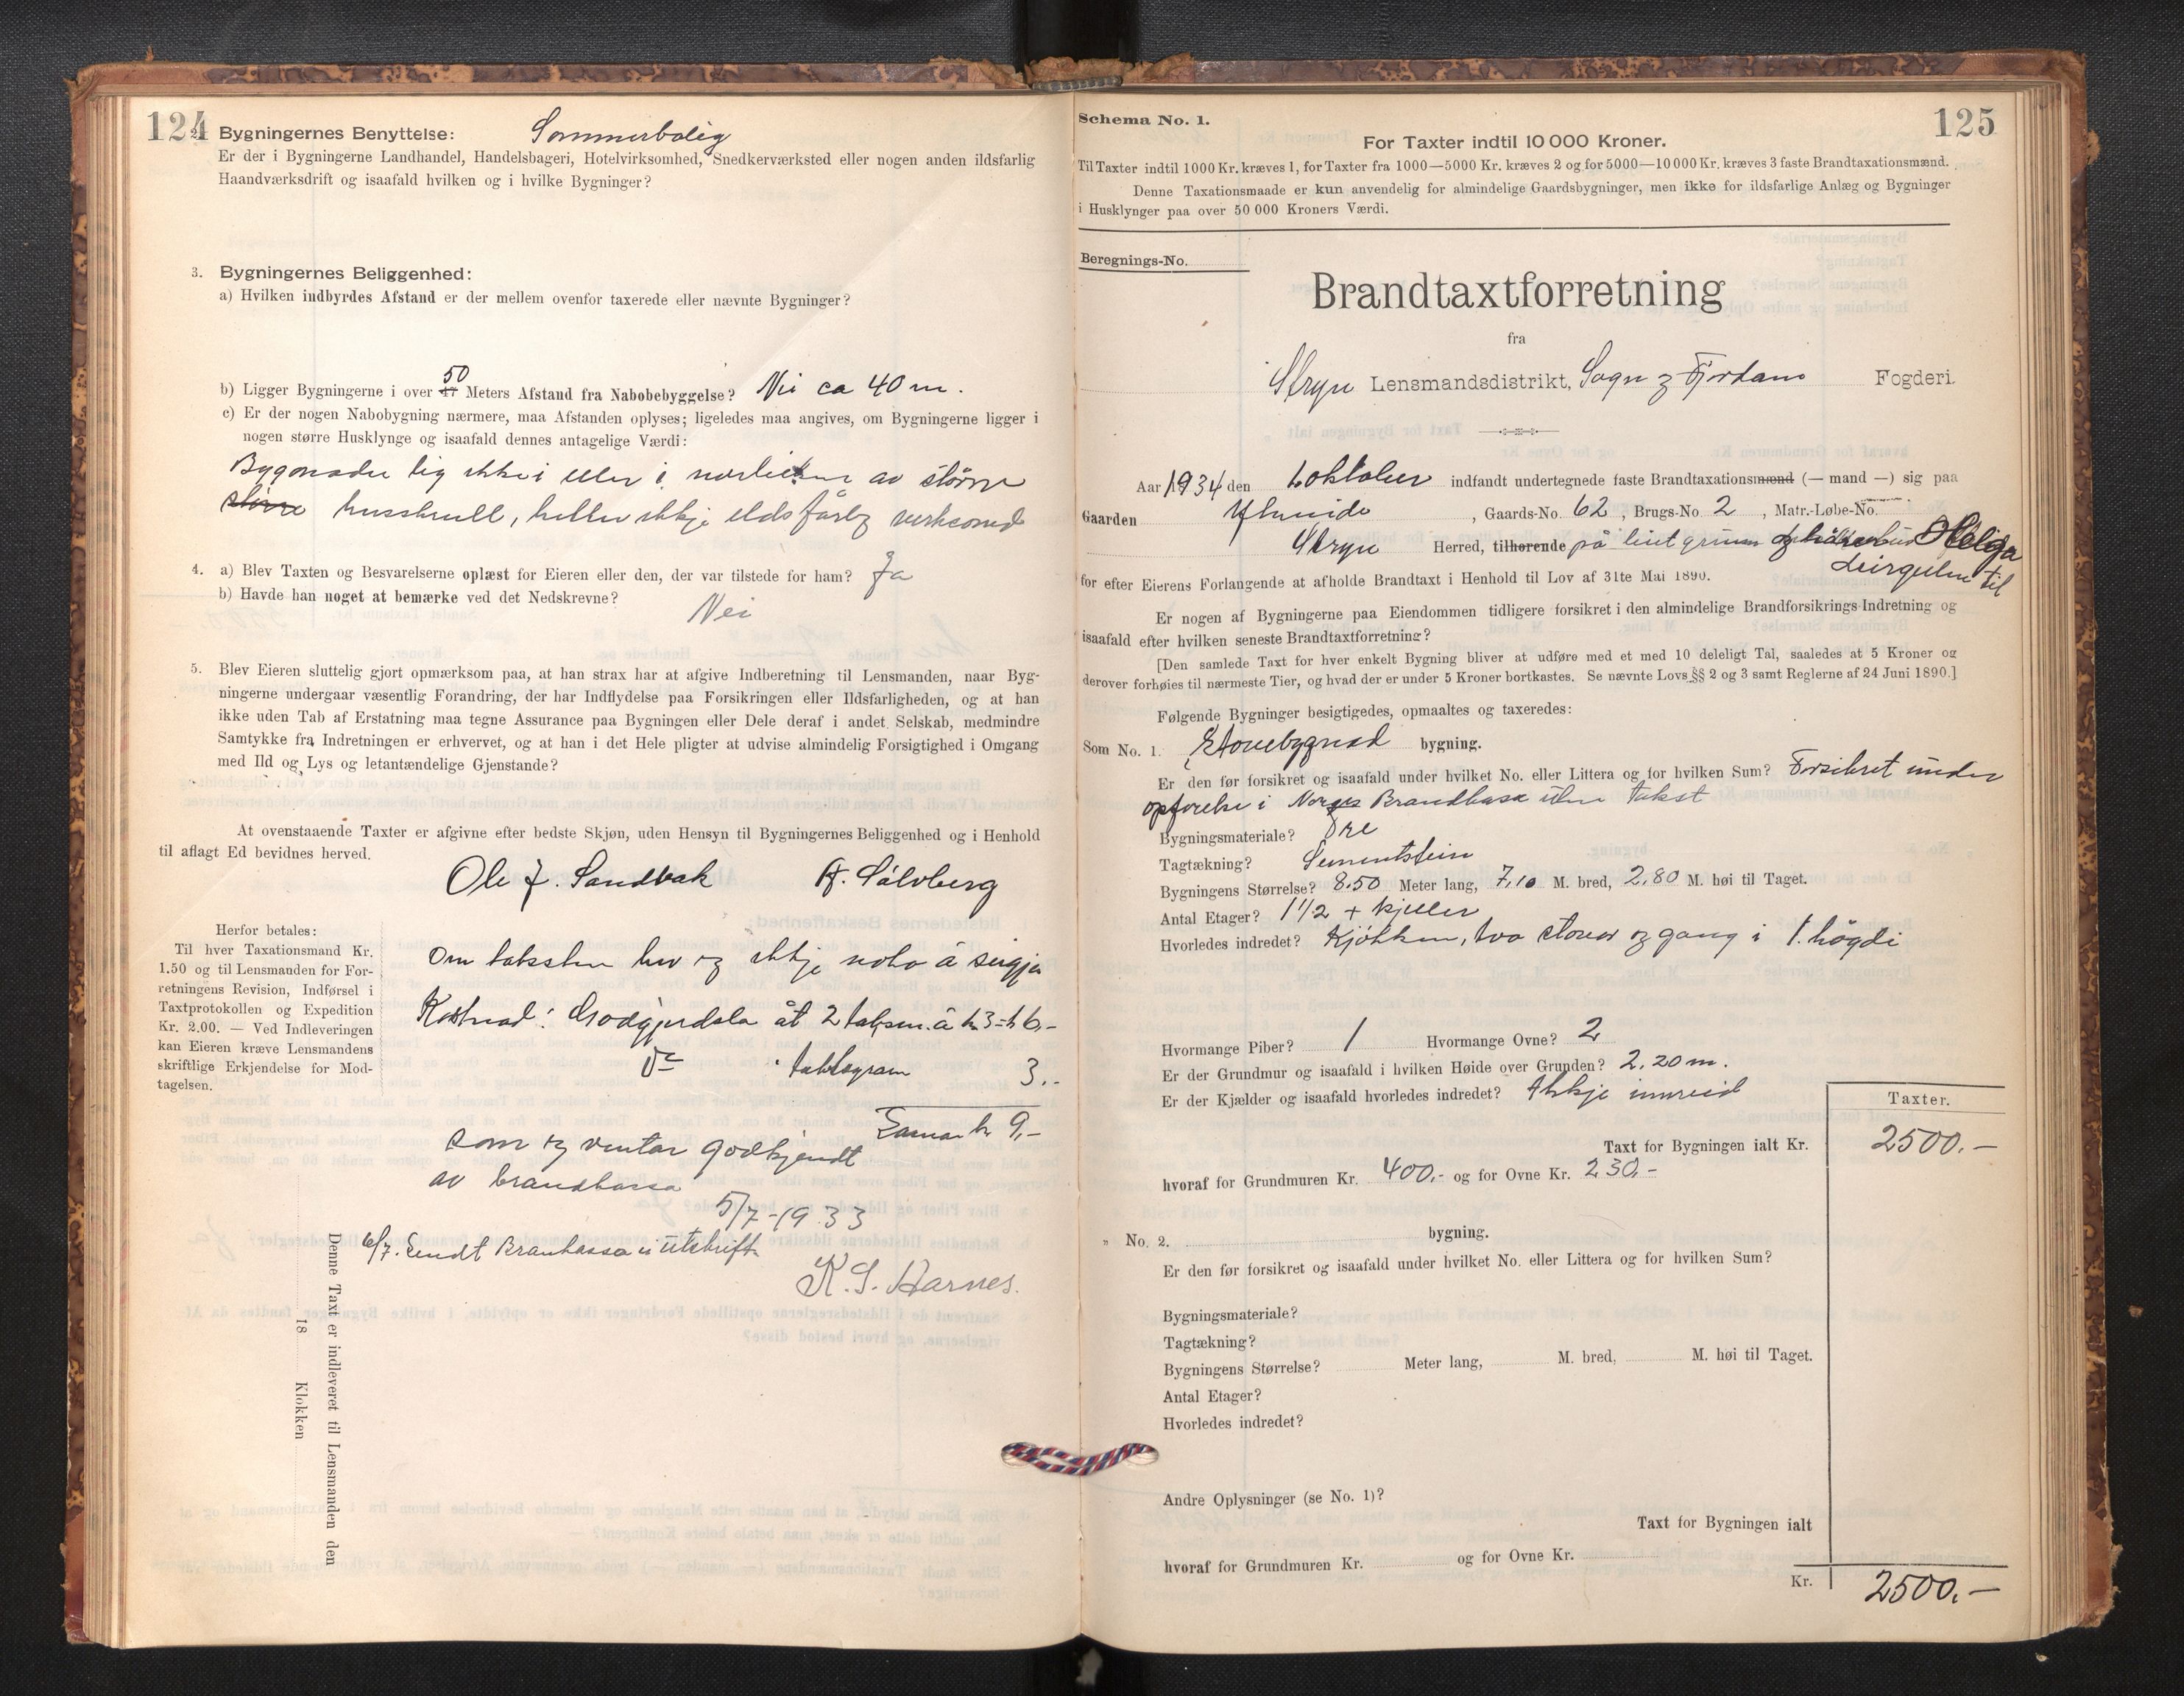 124
2. Bygningernes Benyttelse: Sommerbolig
Er der i Bygningerne Landhandel, Handelsbageri, Hotelvirksomhed, Snedkerværksted eller nogen anden ildsfarlig
Haandværksdrift og isaafald hvilken og i hvilke Bygninger?
3. Bygningernes Beliggenhed:
a) Hvilken indbyrdes Afstand er der mellem ovenfor taxerede eller nævnte Bygninger?
50
b) Ligger Bygningerne i over Meters Afstand fra Nabobebyggelse? Nei ca 40 m.
c) Er der nogen Nabobygning nærmere, maa Afstanden oplyses; ligeledes maa angives, om Bygningerne ligger i
nogen større Husklynge og isaafald dennes antagelige Værdi:
ikkje i eller i av större
större husskrull, heller ikkje eldsfårlig verksemd
4. a) Blev Taxten og Besvarelserne oplæst for Eieren eller den, der var tilstede for ham? Ja
b) Havde han noget at bemærke ved det Nedskrevne? Nei
5. Blev Eieren sluttelig gjort opmærksom paa, at han strax har at afgive Indberetning til Lensmanden, naar Byg-
ningerne undergaar væsentlig Forandring, der har Indflydelse paa Forsikringen eller Ildsfarligheden, og at han
ikke uden Tab af Erstatning maa tegne Assurance paa Bygningen eller Dele deraf i andet Selskab, medmindre
Samtykke fra Indretningen er erhvervet, og at han i det Hele pligter at udvise almindelig Forsigtighed i Omgang
med Ild og Lys og letantændelige Gjenstande?
At ovenstaaende Taxter er afgivne efter bedste Skjøn, uden Hensyn til Bygningernes Beliggenhed og i Henhold
til aflagt Ed bevidnes herved.
Ole J. Sandvak A. Sølvberg
Herfor betales:
Til hver Taxationsmand Kr.
1.50 og til Lensmanden for For-
retningens Revision, Indførsel i
Taxtprotokollen og Expedition
Kr. 2.00. — Ved Indleveringen
kan Eieren kræve Lensmandens
skriftlige Erkjendelse for Mod-
tagelsen.
Om taksten hev eg ikkje noko å seigja
Kostnad: Godgjerdsla åt 2 taksm. à kr 3 = kr 6,-
Do " takstogram 3.-
Samar kr 9,-
som eg ventar godkjendt
av brandkassa
5/7-1933
6/7. Sendt Brankassa i utskrift
K. S. Aarnes.
Denne Taxt er indleveret til Lensmanden den
18 Klokken
125
Schema No. 1.
For Taxter indtil 10 000 Kroner.
Til Taxter indtil 1000 Kr. kræves 1, for Taxter fra 1000—5000 Kr. kræves 2 og for 5000—10 000 Kr. kræves 3 faste Brandtaxationsmænd.
Denne Taxationsmaade er kun anvendelig for almindelige Gaardsbygninger, men ikke for ildsfarlige Anlæg og Bygninger
i Husklynger paa over 50 000 Kroners Værdi.
Beregnings-No.
Brandtaxtforretning
fra
Stryn Lensmandsdistrikt, Sogn og Fjordane Fogderi.
Aar 1934 den 1 oktober indfandt undertegnede faste Brandtaxationsmænd (— mand —) sig paa
Gaarden , Gaards-No. 62, Brugs-No. 2, Matr.-Løbe-No.
Stryn Herred, tilhørende på Helga
til
for efter Eierens Forlangende at afholde Brandtaxt i Henhold til Lov af 31te Mai 1890.
Er nogen af Bygningerne paa Eiendommen tidligere forsikret i den almindelige Brandforsikrings-Indretning og
isaafald efter hvilken seneste Brandtaxtforretning?
[Den samlede Taxt for hver enkelt Bygning bliver at udføre med et med 10 deleligt Tal, saaledes at 5 Kroner og
derover forhøies til nærmeste Tier, og hvad der er under 5 Kroner bortkastes. Se nævnte Lovs §§ 2 og 3 samt Reglerne af 24 Juni 1890.]
Følgende Bygninger besigtigedes, opmaaltes og taxeredes:
Som No. 1. Stovebygnad bygning.
Er den før forsikret og isaafald under hvilket No. eller Littera og for hvilken Sum? Forsikret under
opførelse i Norges Brandkasse uten takst
Bygningsmateriale? Tre
Tagtækning? Sementstein
Bygningens Størrelse? 8.50 Meter lang, 7,10 M. bred, 2,80 M. høi til Taget.
Antal Etager? 1 1/2 + kjeller
Hvorledes indredet? Kjökken, tvo stover og gang i 1. högdi
Hvormange Piber? 1 Hvormange Ovne? 2
Er der Grundmur og isaafald i hvilken Høide over Grunden? 2,20 m.
Er der Kjælder og isaafald hvorledes indredet? Ikkje innreid
Taxter.
Taxt for Bygningen ialt Kr. 2500.—
hvoraf for Grundmuren Kr. 400,- og for Ovne Kr. 230,-
" No. 2. bygning.
Er den før forsikret og isaafald under hvilket No. eller Littera og for hvilken Sum?
Bygningsmateriale?
Tagtækning?
Bygningens Størrelse? Meter lang, M. bred, M. høi til Taget.
Antal Etager?
Hvorledes indredet?
Andre Oplysninger (se No. 1)?
Taxt for Bygningen ialt
hvoraf for Grundmuren Kr. og for Ovne Kr.
Kr. 2500.—